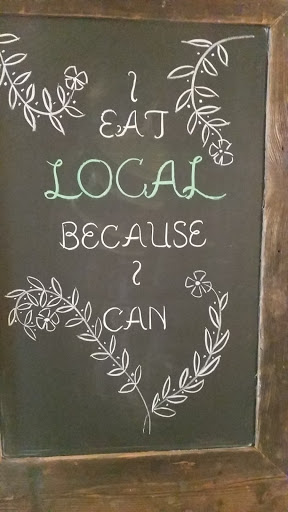 I
EAT
LOCAL
BECAUSE
I
CAN